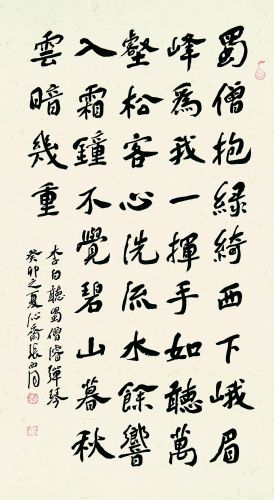 蜀僧抱綠綺西下峨眉
峰為我一揮手如聽萬
壑松客心洗流水餘響
入霜鐘不覺碧山暮秋
雲暗幾重
李白聽蜀僧濬彈琴
癸卯之夏沁齋張